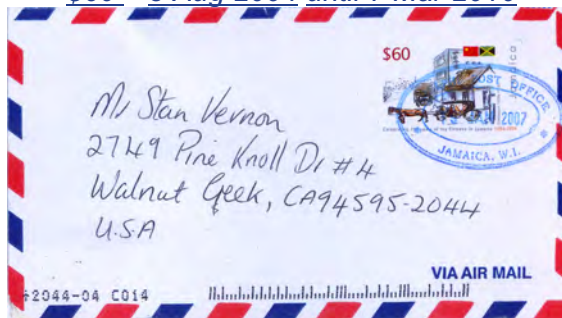 $60
Jamaica
POST OFFICE
2007
JAMAICA, W.I.
Mr Stan Vernon
2749 Pine Knoll Dr #4
Walnut Creek, CA94595-2044
U.S.A
VIA AIR MAIL
2044-04 C014